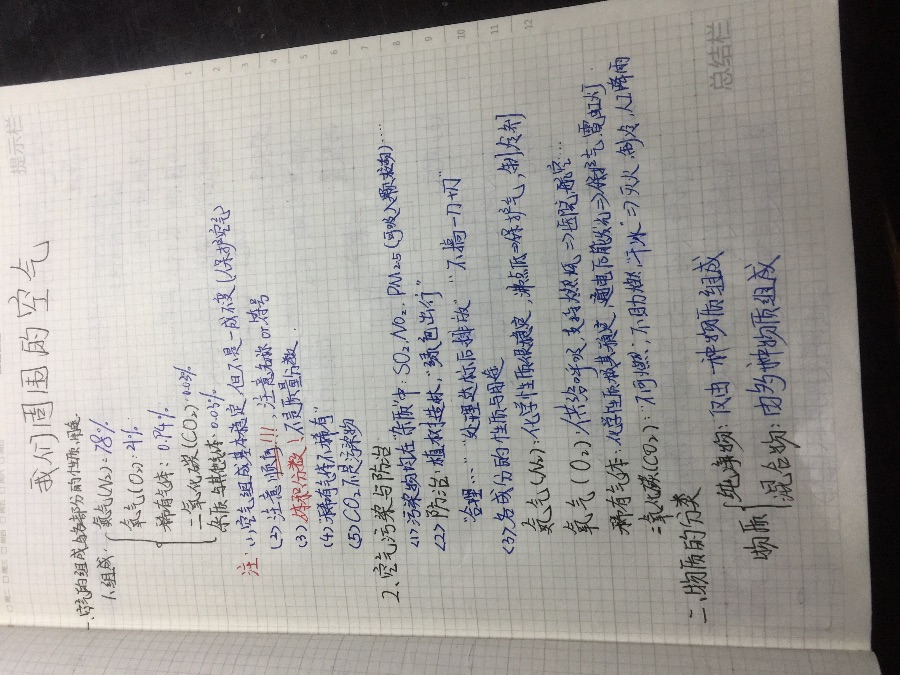 提示栏
我们周围的空气
一、空气的组成与各部分的性质、用途
1、组成:
氮气(N₂):78%
氧气(O₂):21%
稀有气体:0.94%
二氧化碳(CO₂):0.03%
杂质与其他气体:0.03%
注:(1)空气组成基本稳定,但不是一成不变(保护空气)
(2)注意顺序!!!注意名称or符号
(3)体积分数!不是质量分数
(4)"稀有气体不稀有"
(5)CO₂不是污染物
2、空气污染与防治
<1>污染物均在"杂质"中:SO₂、NO₂、PM2.5(可吸入颗粒物)……
<2>防治:植树造林,绿色出行
合理……""处理达标后排放""不搞一刀切"
<3>各成分的性质与用途
氮气(N₂):化学性质很稳定,沸点低⇒保护气,制冷剂
氧气(O₂):供给呼吸,支持燃烧⇒医院,航空…
稀有气体:化学性质极其稳定,通电下能发光⇒保护气,霓虹灯
二氧化碳(CO₂):不可燃,不助燃,"干冰"⇒灭火,制冷,人工降雨
二、物质的分类
物质
纯净物:仅由一种物质组成
混合物:由多种物质组成
总结栏
1 2 3 4 5 6 7 8 9 10 11 12